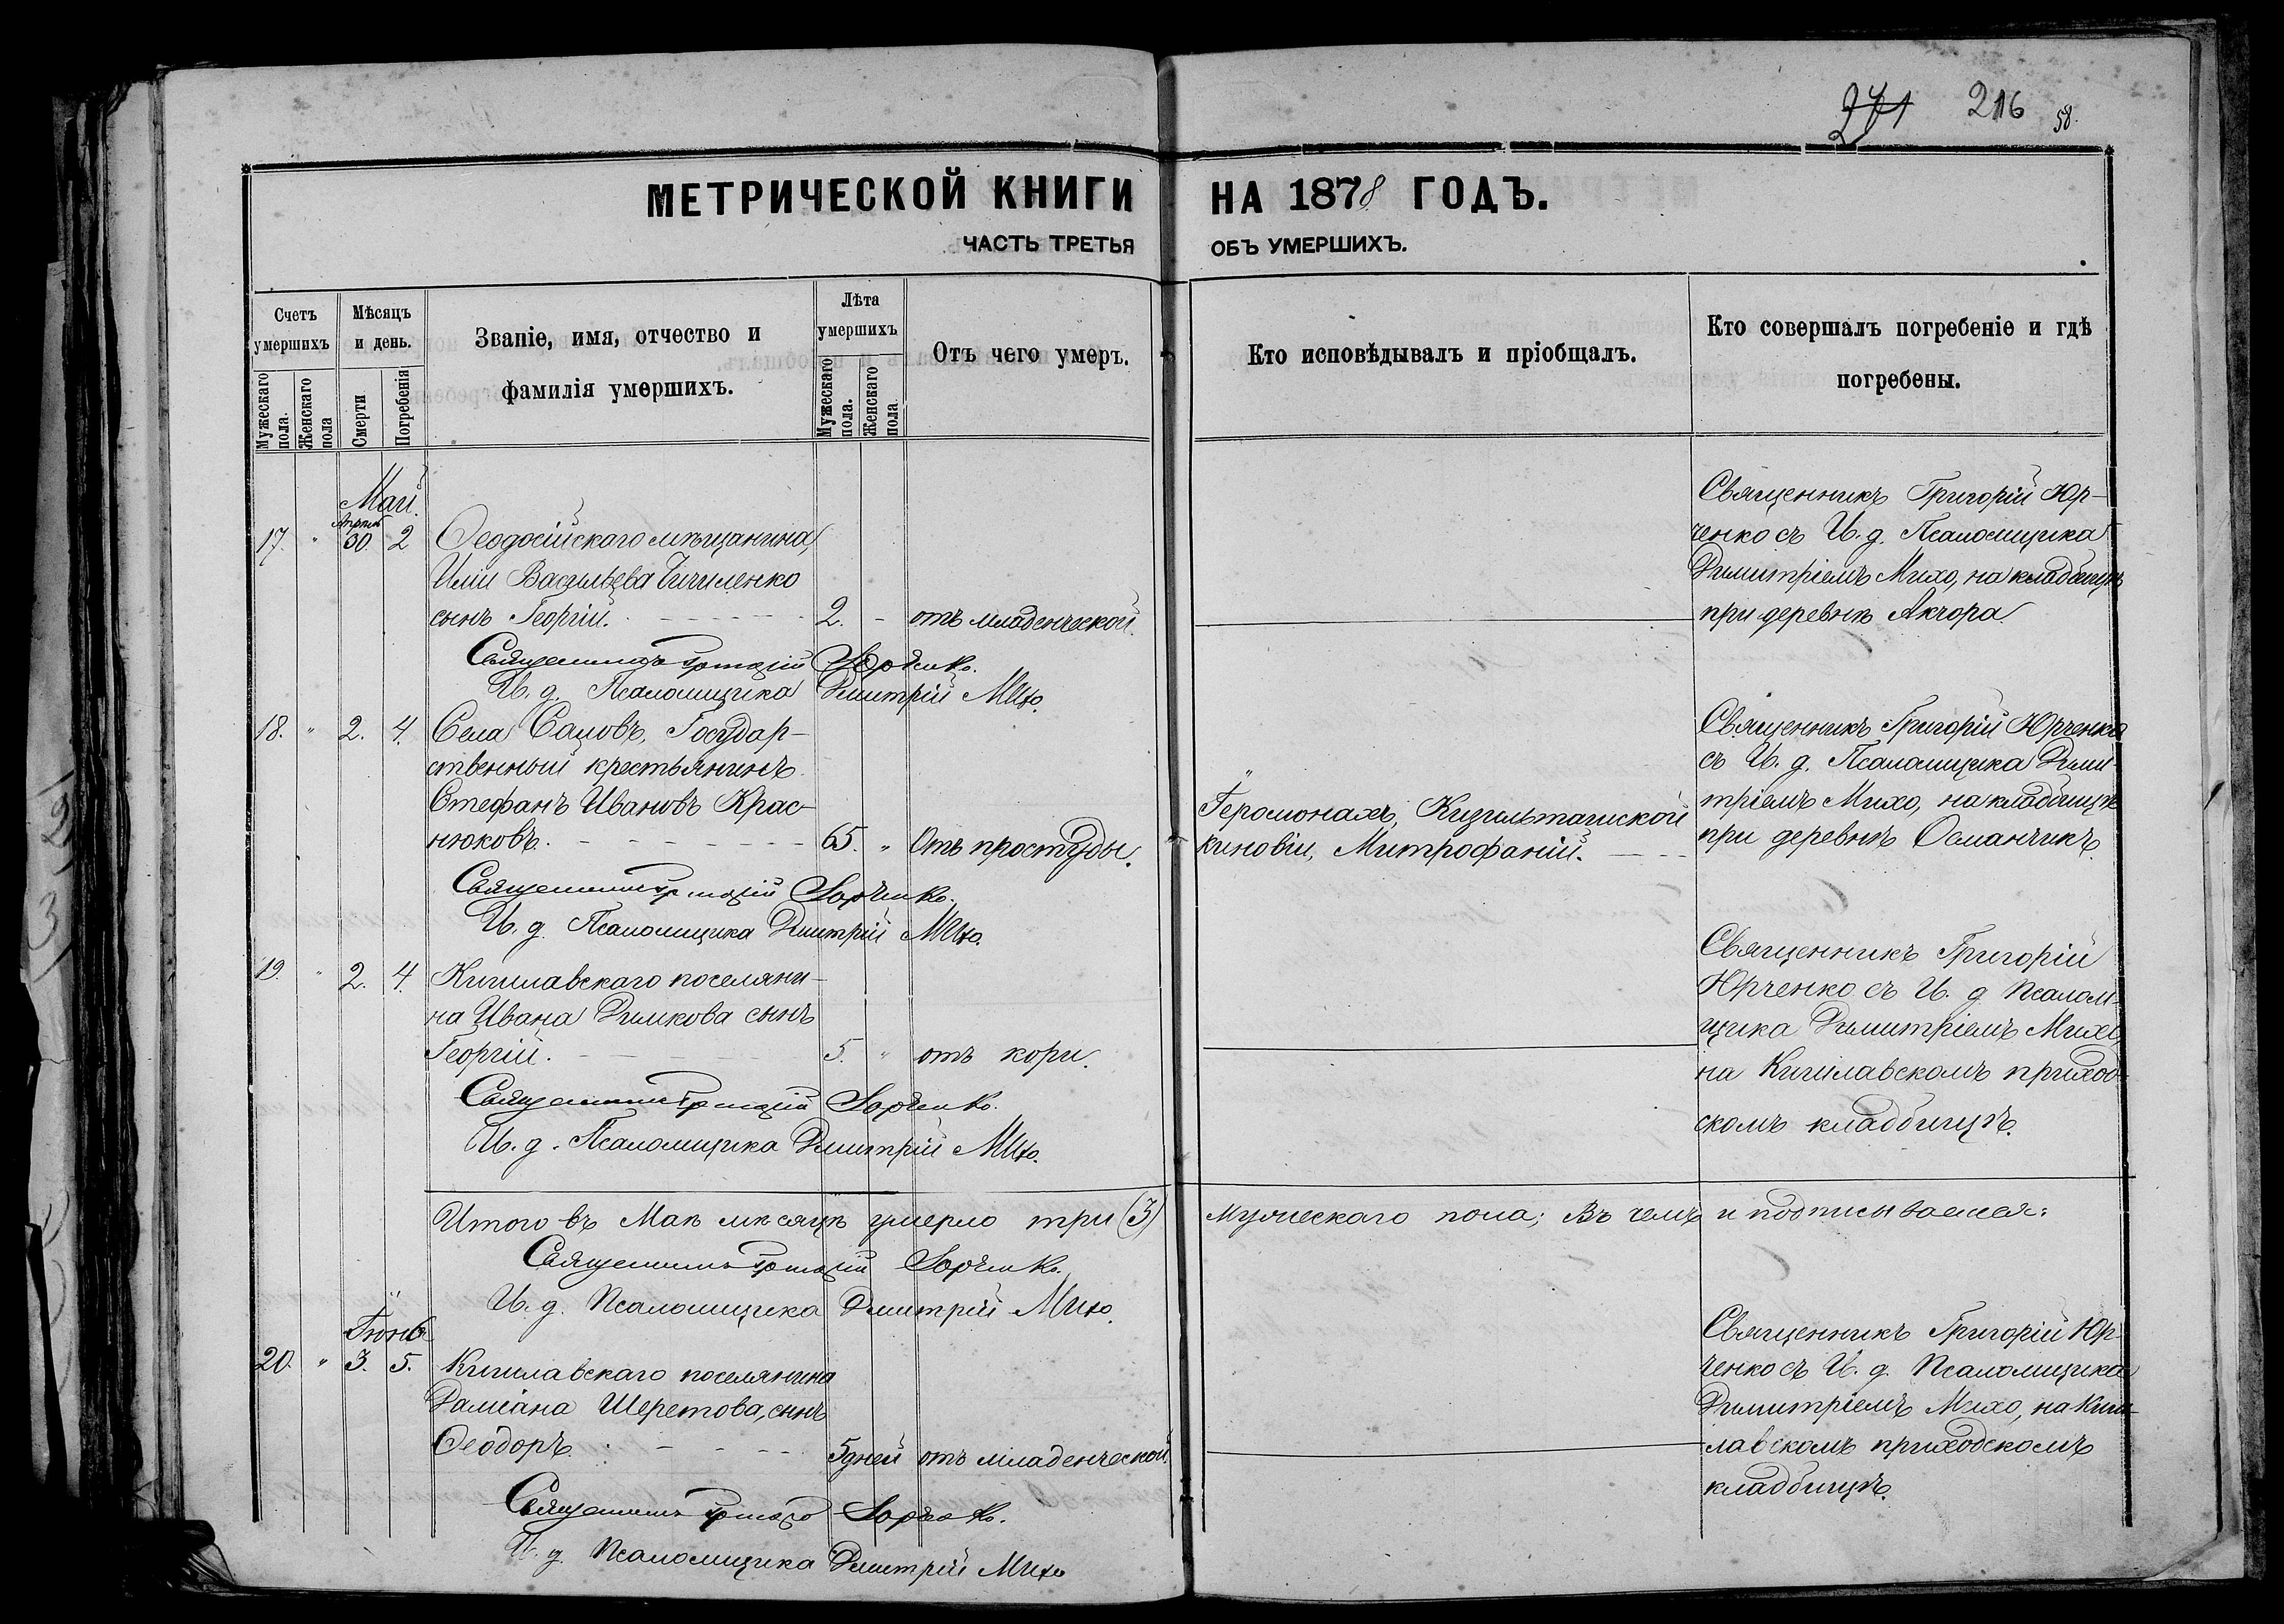 271 216 58.
МЕТРИЧЕСКОЙ КНИГИ НА 1878 ГОДЪ.
ЧАСТЬ ТРЕТЬЯ ОБЪ УМЕРШИХЪ.
Счетъ умершихъ
Мужескаго пола.
Женскаго пола
Мѣсяцъ и день.
Смерти
Погребенія
Званіе, имя, отчество и
фамилія умершихъ.
Лѣта умершихъ
Мужескаго пола.
Женскаго пола
Отъ чего умеръ.
Кто исповѣдывалъ и пріобщалъ.
Кто совершалъ погребеніе и гдѣ
погребены.
Май.
Апрѣля
17. " 30 2 Ѳеодосійскаго мѣщанина,
Иліи Васильева Чичиленко
сынъ Георгій. 2. - отъ младенческой.
Священникъ Григорій Юр-
ченко съ И. д. Псаломщика
Димитріемъ Михо, на кладбищѣ
при деревнѣ Акчора
Священникъ Григорій Юрченко.
И. д. Псаломщика Дмитрій Михо.
18. " 2. 4. Села Саловъ, Государ-
ственный крестьянинъ
Стефанъ Ивановъ Крас-
нюковъ. 65. " Отъ простуды.
Іеромонахъ, Кизильташской
киновіи, Митрофаній.
Священникъ Григорій Юрченко
съ И. д. Псаломщика Дими-
тріемъ Михо, на кладбищѣ
при деревнѣ Османчикъ.
Священникъ Григорій Юрченко.
И. д. Псаломщика Дмитрій Михо.
19. " 2. 4. Кишлавскаго поселяни-
на Ивана Димкова сынъ
Георгій. 5. " отъ кори.
Священникъ Григорій
Юрченко съ И. д. Псалом-
щика Димитріемъ Михо,
на Кишлавскомъ приход-
скомъ кладбищѣ.
Священникъ Григорій Юрченко.
И. д. Псаломщика Дмитрій Михо.
Итого въ Маѣ мѣсяцѣ умерло три (3) мужескаго пола; Въ чемъ и подписываемся:
Священникъ Григорій Юрченко.
И. д. Псаломщика Дмитрій Михо.
Іюнь
20. " 3. 5. Кишлавскаго поселянина
Даміана Шеретова, сынъ
Ѳеодоръ. 5 дней отъ младенческой.
Священникъ Григорій Юр-
ченко съ И. д. Псаломщика
Димитріемъ Михо, на Киш-
лавскомъ приходскомъ
кладбищѣ.
Священникъ Григорій Юрченко.
И. д. Псаломщика Дмитрій Михо